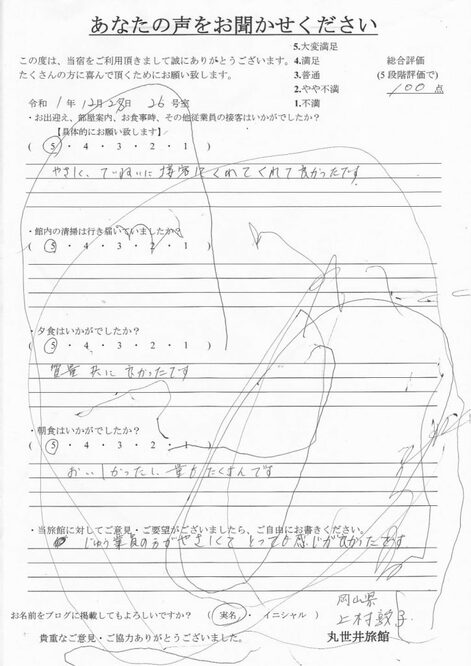 あなたの声をお聞かせください
この度は、当宿をご利用頂きまして誠にありがとうございます。
たくさんの方に喜んで頂くためにお願い致します。
5.大変満足
4.満足
3.普通
2.やや不満
1.不満
総合評価
(5段階評価で)
100 点
令和 1年 12月 28日 26号室
・お出迎え、部屋案内、お食事時、その他従業員の接客はいかがでしたか?
【具体的にお願い致します】
( 5 ・ 4 ・ 3 ・ 2 ・ 1 )
やさしく、ていねいに接客してくれて良かったです
・館内の清掃は行き届いていましたか?
( 5 ・ 4 ・ 3 ・ 2 ・ 1 )
・夕食はいかがでしたか?
( 5 ・ 4 ・ 3 ・ 2 ・ 1 )
質量共に良かったです
・朝食はいかがでしたか?
( 5 ・ 4 ・ 3 ・ 2 ・ 1 )
おいしかったし、量もたくさんです
・当旅館に対してご意見・ご要望がございましたら、ご自由にお書きください。
じゅう業員の方がやさしくてとっても感じが良かったです
お名前をブログに掲載してもよろしいですか? ( 実名 ・ イニシャル )
岡山県
上村敦子
貴重なご意見・ご協力ありがとうございました。
丸世井旅館